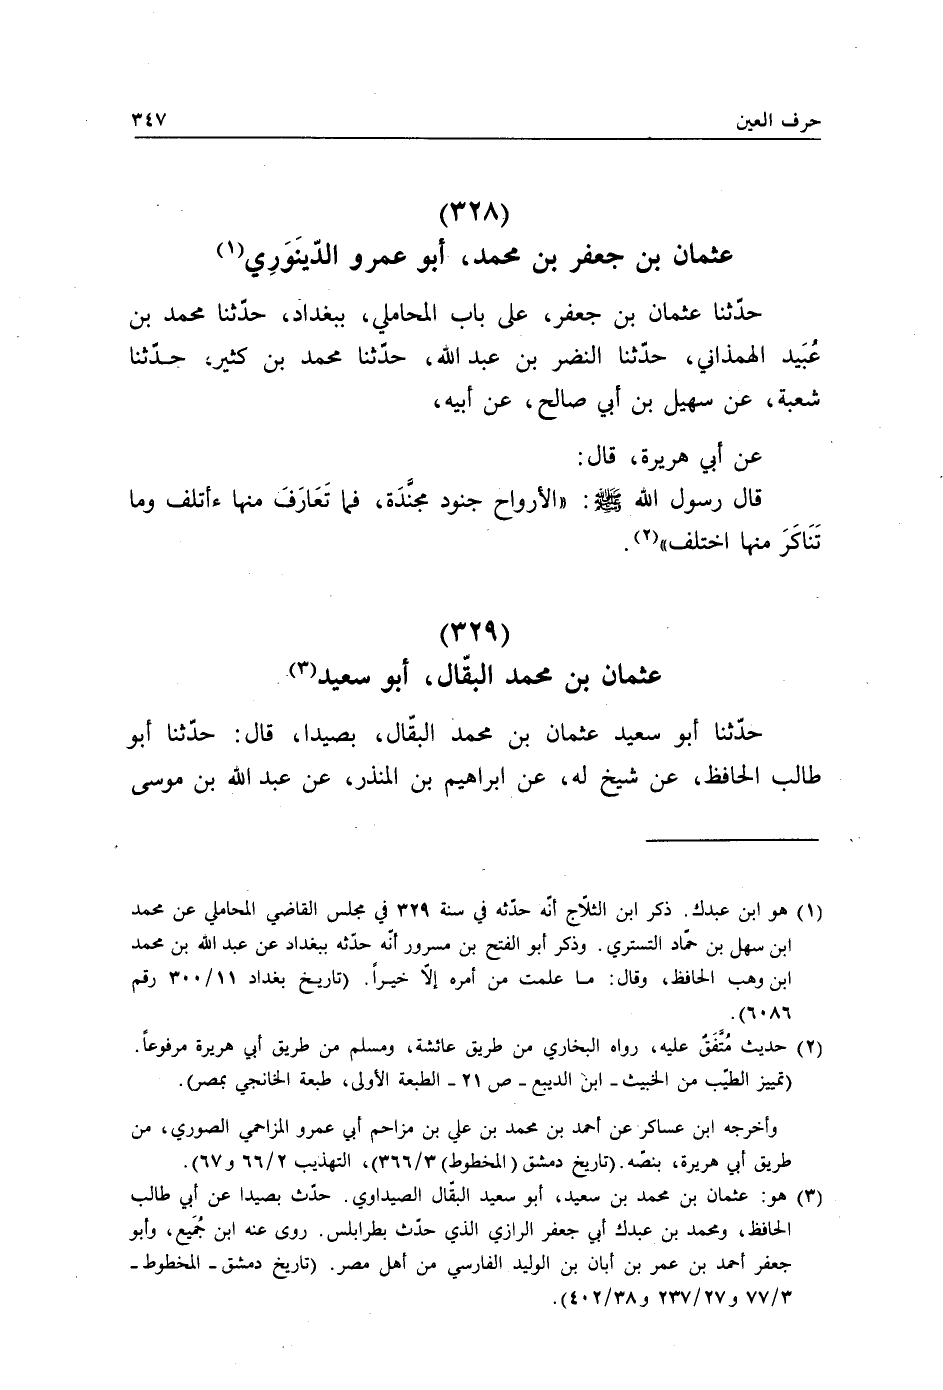 حرف العين ٣٤٧
(٣٢٨)
عثمان بن جعفر بن محمد، أبو عمرو الدّينَوَرِي(١)
حدّثنا عثمان بن جعفر، على باب المحاملي، ببغداد، حدّثنا محمد بن
عُبَيد الهمذاني، حدّثنا النضر بن عبد الله، حدّثنا محمد بن كثير، حـدّثنا
شعبة، عن سهيل بن أبي صالح، عن أبيه،
عن أبي هريرة، قال:
قال رسول الله ﷺ: «الأرواح جنود مجنَّدَة، فما تَعَارَفَ منها ءأتلف وما
تَنَاكَرَ منها اختلف»(٢).
(٣٢٩)
عثمان بن محمد البقّال، أبو سعيد(٣)
حدّثنا أبو سعيد عثمان بن محمد البقّال، بصيدا، قال: حدّثنا أبو
طالب الحافظ، عن شيخ له، عن ابراهيم بن المنذر، عن عبد الله بن موسى
(١) هو ابن عبدك. ذكر ابن الثلّاج أنّه حدّثه في سنة ٣٢٩ في مجلس القاضي المحاملي عن محمد
ابن سهل بن حمّاد التستري. وذكر أبو الفتح بن مسرور أنّه حدّثه ببغداد عن عبد الله بن محمد
ابن وهب الحافظ، وقال: مـا علمت من أمره إلّا خيـراً. (تاريـخ بغداد ٣٠٠/١١ رقم
٦٠٨٦).
(٢) حديث مُتَّفَقٌ عليه، رواه البخاري من طريق عائشة، ومسلم من طريق أبي هريرة مرفوعاً.
(تمييز الطيّب من الخبيث ـ ابن الديبع ـ ص ٢١ ـ الطبعة الأولى، طبعة الخانجي بمصر).
وأخرجه ابن عساكر عن أحمد بن محمد بن علي بن مزاحم أبي عمرو المزاحمي الصوري، من
طريق أبي هريرة، بنصّه. (تاريخ دمشق (المخطوط) ٣٦٦/٣)، التهذيب ٦٦/٢ و٦٧).
(٣) هو: عثمان بن محمد بن سعيد، أبو سعيد البقّال الصيداوي. حدّث بصيدا عن أبي طالب
الحافظ، ومحمد بن عبدك أبي جعفر الرازي الذي حدّث بطرابلس. روى عنه ابن جُمَيع، وأبو
جعفر أحمد بن عمر بن أبان بن الوليد الفارسي من أهل مصر. (تاريخ دمشق ـ المخطوط ـ
٧٧/٣ و٢٣٧/٢٧ و٤٠٢/٣٨).